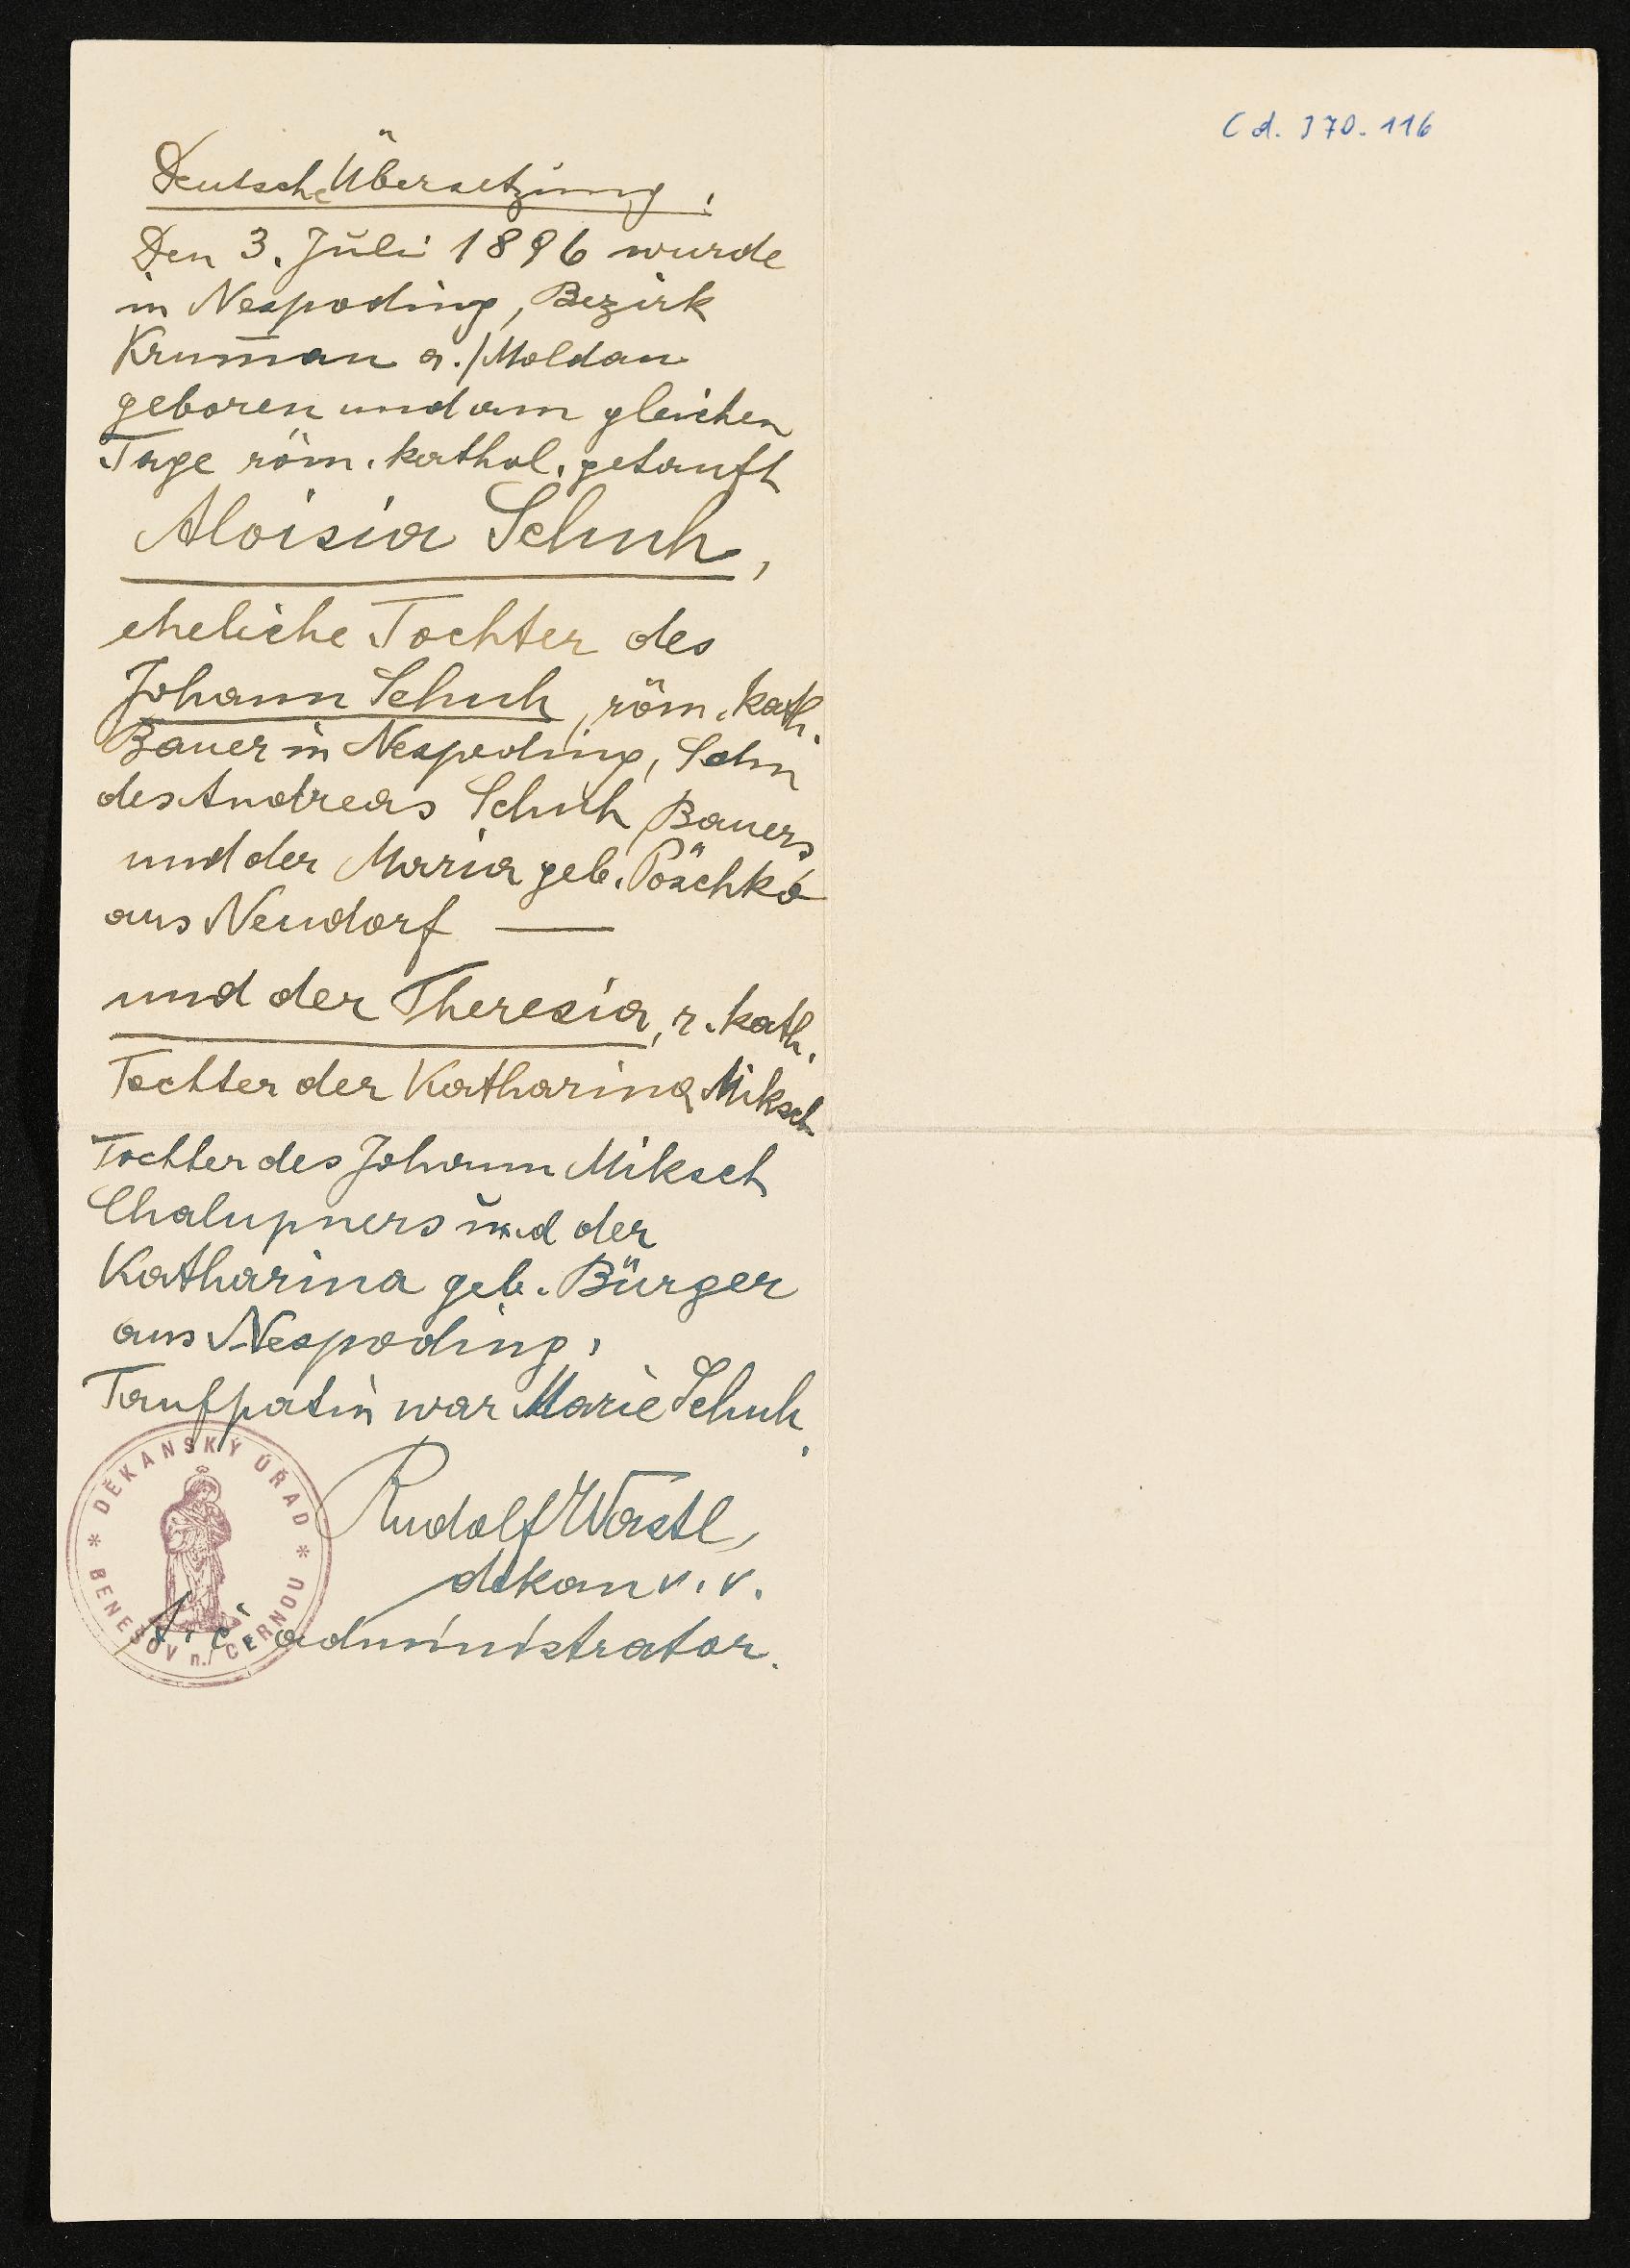 Cd. 370.116
Deutsche Übersetzung.
Den 3. Juli 1896 wurde
in Nespoding, Bezirk
Krum̄au a./Moldau
geboren und am gleichen
Tage röm. kathol. getauft
Aloisia Schuh,
eheliche Tochter des
Johann Schuh, röm. kath.
Bauer in Nespoding, Sohn
des Andreas Schuh Bauers
und der Maria geb. Pöschko
aus Neudorf —
und der Theresia, r. kath.
Tochter der Katharina Miksch
Tochter des Johann Miksch
Chalupners und der
Katharina geb. Bürger
aus Nespoding.
Taufpatin war Marie Schuh.
Rudolf Wastl,
děkan v. v.
t. č. administrator.
* DĚKANSKÝ ÚŘAD *
BENEŠOV n./ČERNOU